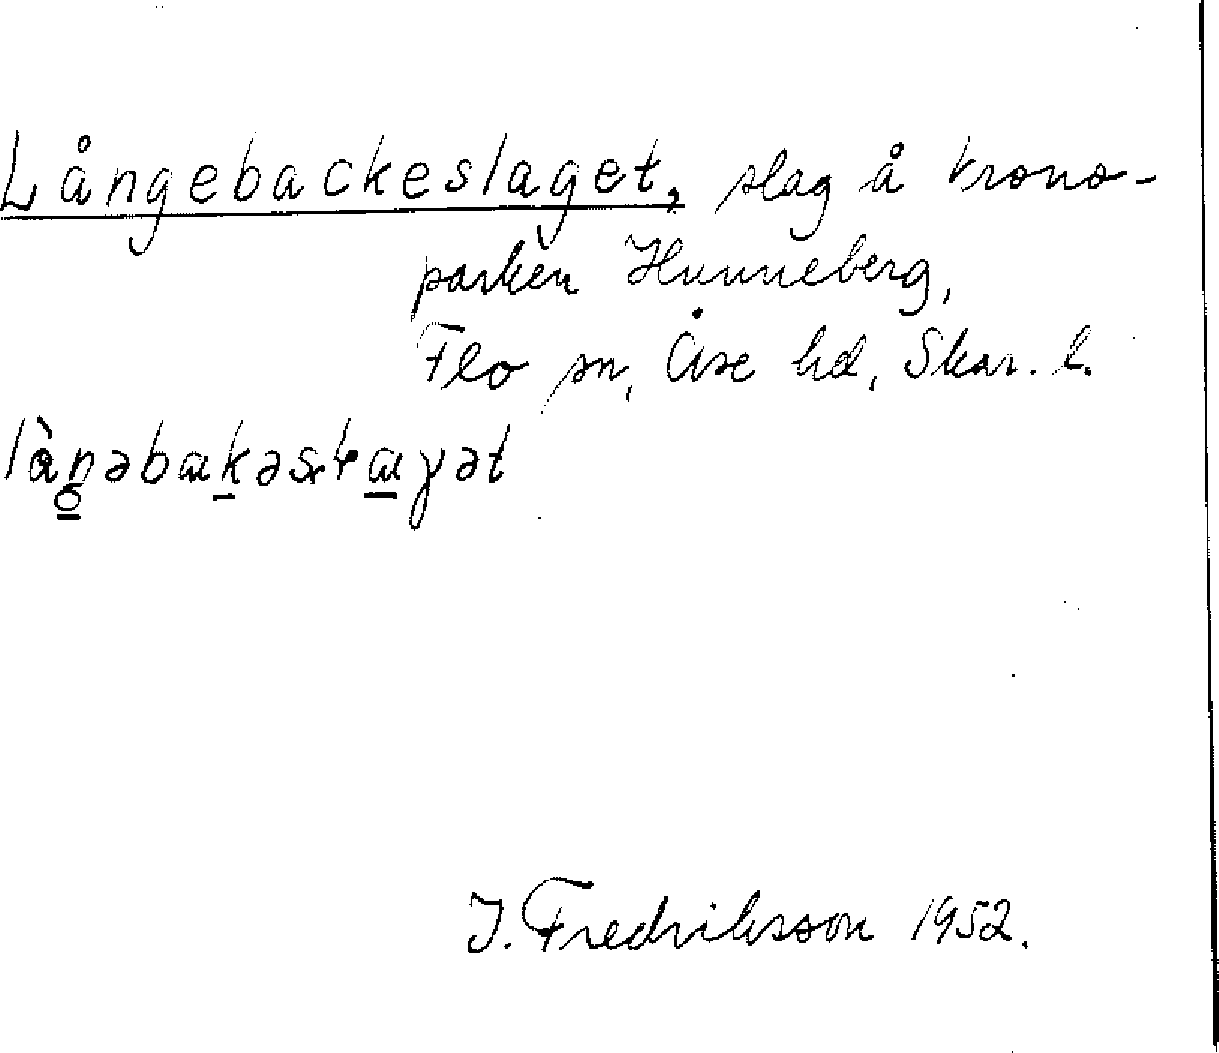 Långebackeslaget, slag å krono-
parken Hunneberg,
Flo sn, Åse hd, Skar. l.
I. Fredriksson 1952.